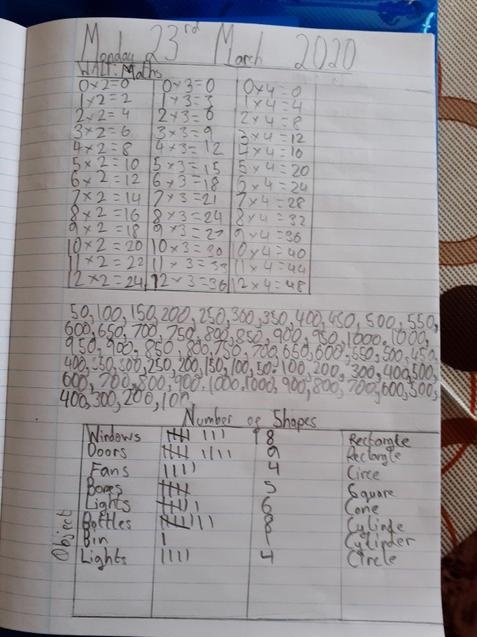 Monday 23rd March 2020
WALT: Maths
0×2=0 0×3=0 0×4=0
1×2=2 1×3=3 1×4=4
2×2=4 2×3=6 2×4=8
3×2=6 3×3=9 3×4=12
4×2=8 4×3=12 4×4=16
5×2=10 5×3=15 5×4=20
6×2=12 6×3=18 6×4=24
7×2=14 7×3=21 7×4=28
8×2=16 8×3=24 8×4=32
9×2=18 9×3=27 9×4=36
10×2=20 10×3=30 10×4=40
11×2=22 11×3=33 11×4=44
12×2=24 12×3=36 12×4=48
50,100,150,200,250,300,350,400,450,500,550,
600,650,700,750,800,850,900,950,1000.1000,
950,900,850,800,750,700,650,600,550,500,450
400,350,300,250,200,150,100,50.100,200,300,400,500,
600,700,800,900,1000.1000,900,800,700,600,500,
400,300,200,100.
Number of Shapes
Object
Windows 8 Rectangle
Doors 9 Rectangle
Fans 4 Circe
Boxes 5 Square
Lights 6 Cone
Bottles 8 Cylinde
Bin 1 Cylinder
Lights 4 Circle